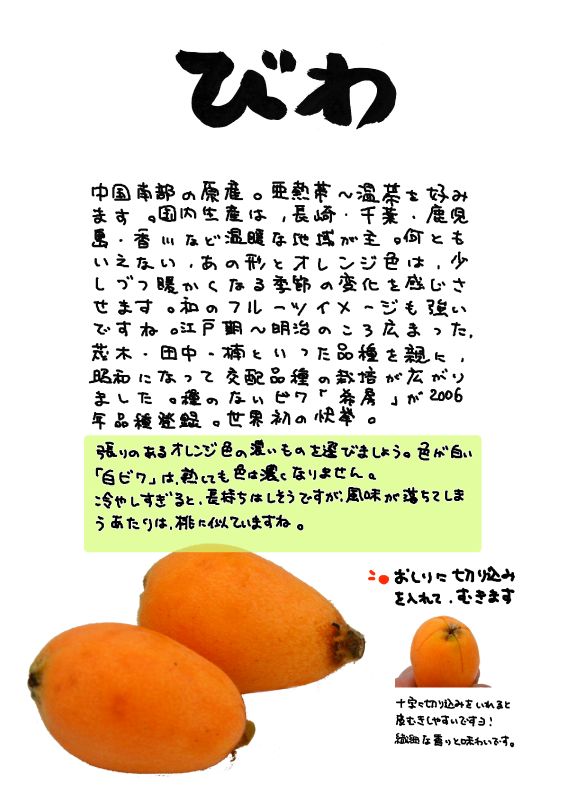 びわ
中国南部の原産。亜熱帯～温帯を好み
ます。国内生産は,長崎・千葉・鹿児
島・香川など温暖な地域が主。何とも
いえない,あの形とオレンジ色は,少
しづつ暖かくなる季節の変化を感じさ
せます。和のフルーツイメージも強い
ですね。江戸期～明治のころ広まった,
茂木・田中・楠といった品種を親に,
昭和になって交配品種の栽培が広がり
ました。種のないビワ「希房」が2006
年品種登録。世界初の快挙。
張りのあるオレンジ色の濃いものを選びましょう。色が白い
「白ビワ」は,熟しても色は濃くなりません。
冷やしすぎると,長持ちはしそうですが,風味が落ちてしま
うあたりは,桃に似ていますね。
おしりに切り込み
を入れて,むきます
十字に切り込みをいれると
皮むきしやすいですヨ!
繊細な香りと味わいです。